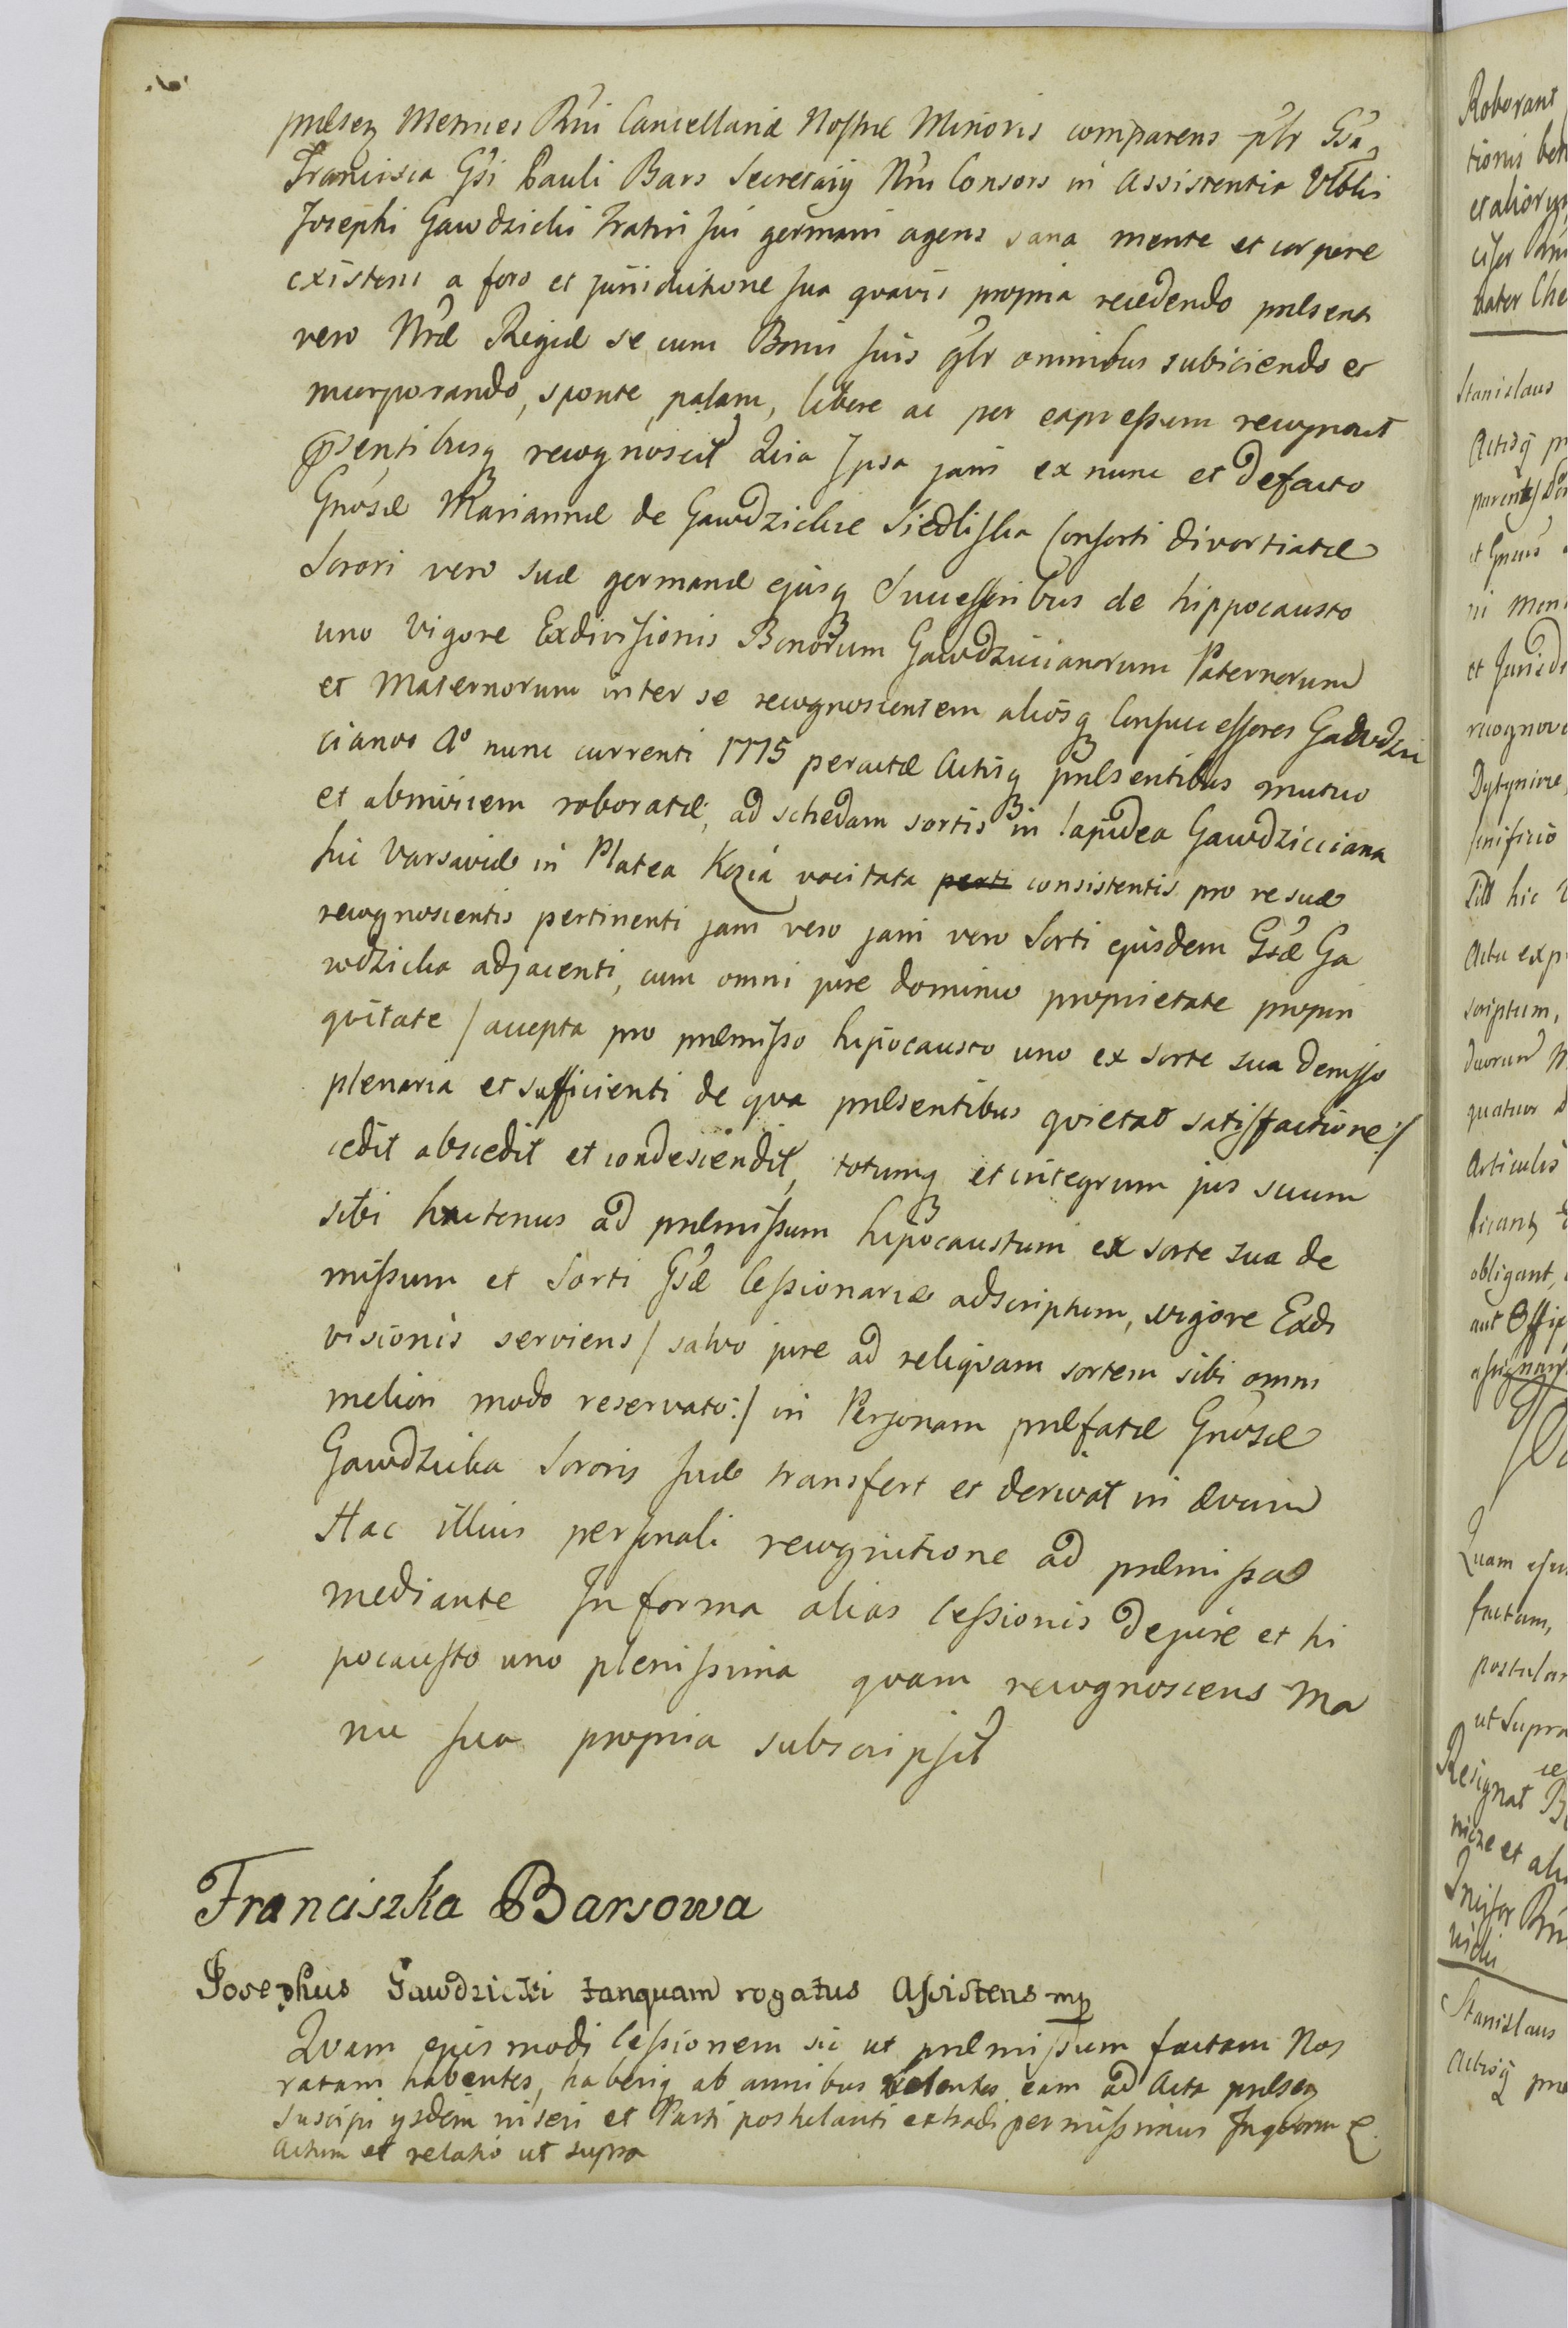 prᴂsen Metrices Rni Cancellariᴂ Nostrᴂ Minoris comparens plr Gsa
Francisca Gsi Pauli Bars Secretarij Nri Consors in Assistentia
Josephi Gawdzicki Fratris sui germani agens sana mente et corpore
existens a foro et jurisdictione sua quavis propria recedendo prᴂsenti
vero Nrᴂ Regiᴂ se cum Bonis suis glr omnibus subiiciendo et
incorporando, sponte, palam, libere ac per expressum recognovit
psentibusq recognoscit Quia Ipsa jam ex nunc et defacto
Gnosᴂ Mariannᴂ de Gawdzickie Siedliska Consorti divortiatᴂ
Sorori vero suᴂ germanᴂ ejusq Successoribus de hippocausto
uno Vigore Exdivisionis Bonorum Gawdziccianorum Paternorum
et Maternorum inter se recognoscentem aliosq Consuccessores Gawdzic
cianos Aº nunc currenti 1775 peractᴂ Actisq prᴂsentibus mutuo
et abinvicem roboratᴂ, ad schedam sortis in lapidea Gawdzicciana
hic Varsaviᴂ in Platea Kozia vocitata perti consistentis pro re suᴂ
recognoscentis pertinenti jam vero jam vero Sorti ejusdem Gsᴂ Ga
wdzicka adjacenti, cum omni jure dominio proprietate propin
quitate / accepta pro prᴂmisso hipocausto uno ex sorte sua demisso
plenaria et sufficienti de qua prᴂsentibus quietat satisfactione:/
cedit abscedit et condescendit, totumq et integrum jus suum
sibi hactenus ad prᴂmissum hipocaustum ex sorte sua de
missum et Sorti Gsᴂ Cessionariᴂ adscriptum, vigore Exdi
visionis serviens / salvo jure ad reliquam sortem sibi omni
meliori modo reservato:/ in Personam prᴂfatᴂ Gnosᴂ
Gawdzicka Sororis suᴂ transfert et derivat in ᴂvum
Hac illius personali recognitione ad prᴂmissa
mediante In forma alias Cessionis de jure et hi
pocausto uno plenissima quam recognoscens Ma
nu sua propria subscripsit
Franciszka Barsowa
Josephus Gawdzicki tanquam rogatus Assistens mp
Quam ejusmodi Cessionem sic ut prᴂmissum factam Nos
ratam habentes, haberiq ab omnibus volentes, eam ad Acta prᴂsen
suscipi ysdem inseri et Parti postulanti extradi permissimus In quorum
Actum et relatio ut supra
Roborant
tionis
et aliorum
Stanislaus
Actisq
et
recognov
hic
Actu exp
scriptum,
duorum
quatuor
Articulis
obligant,
aut
Quam ejus
factam,
postulan
ut Supra
Resignat
et
Stanislaus
Actisq prᴂ